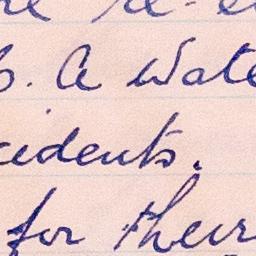 re-e
. A Wate
cidents.
for their